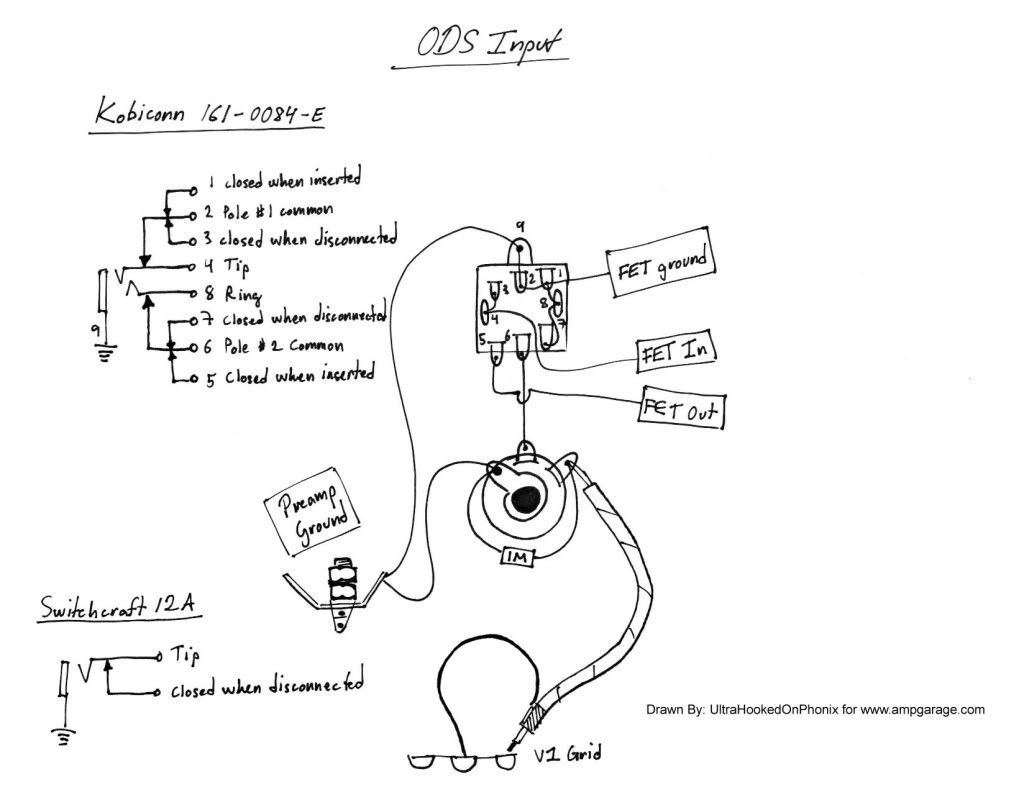 ODS Input
Kobiconn 161-0084-E
1 closed when inserted
2 Pole #1 common
3 closed when disconnected
4 Tip
8 Ring
7 closed when disconnected
6 Pole #2 Common
5 Closed when inserted
9
9
1
2
3
8
4
7
5
6
FET ground
FET In
FET Out
Preamp
Ground
1M
Switchcraft 12A
Tip
Closed when disconnected
V1 Grid
Drawn By: UltraHookedOnPhonix for www.ampgarage.com